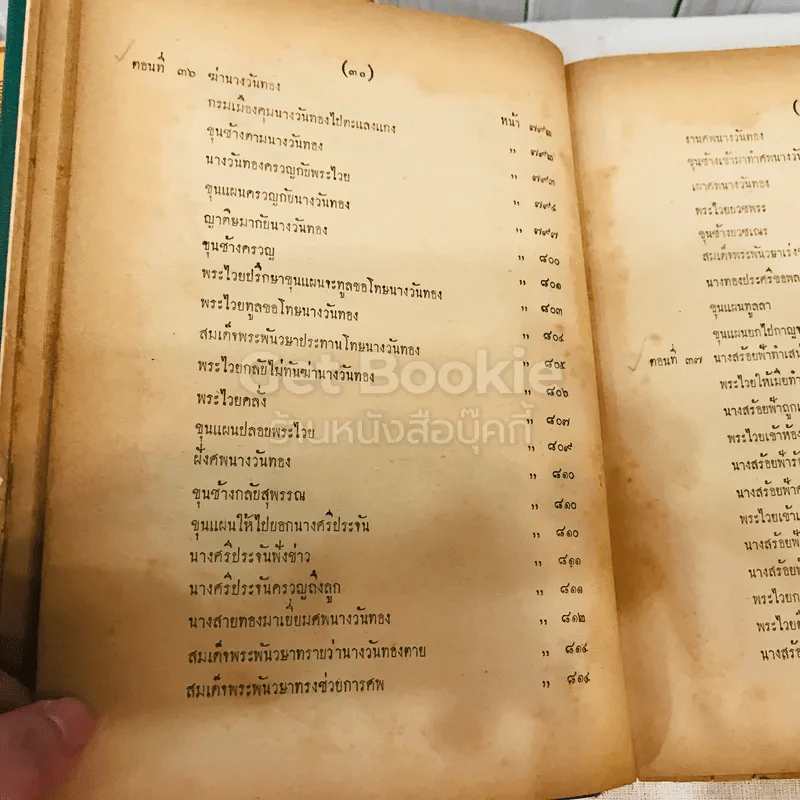 (๓๐)
ตอนที่ ๓๖ ฆ่านางวันทอง หน้า ๗๙๒
กรมเมืองคุมนางวันทองไปตะแลงแกง ,, ๗๙๒
ขุนช้างตามนางวันทอง ,, ๗๙๓
นางวันทองครวญกับพระไวย ,, ๗๙๔
ขุนแผนครวญกับนางวันทอง ,, ๗๙๗
ญาติมากับนางวันทอง ,, ๘๐๐
ขุนช้างครวญ ,, ๘๐๑
พระไวยปรึกษาขุนแผนจะทูลขอโทษนางวันทอง ,, ๘๐๓
พระไวยทูลขอโทษนางวันทอง ,, ๘๐๔
สมเด็จพระพันวษาประทานโทษนางวันทอง ,, ๘๐๕
พระไวยกลับไม่ทันฆ่านางวันทอง ,, ๘๐๖
พระไวยคลั่ง ,, ๘๐๗
ขุนแผนปลอบพระไวย ,, ๘๐๙
ฝังศพนางวันทอง ,, ๘๑๐
ขุนช้างกลับสุพรรณ ,, ๘๑๐
ขุนแผนให้ไปบอกนางศรีประจัน ,, ๘๑๐
นางศรีประจันฟังข่าว ,, ๘๑๑
นางศรีประจันครวญถึงลูก ,, ๘๑๑
นางสายทองมาเยี่ยมศพนางวันทอง ,, ๘๑๒
สมเด็จพระพันวษาทราบว่านางวันทองตาย ,, ๘๑๔
สมเด็จพระพันวษาทรงช่วยการศพ ,, ๘๑๔
งานศพนางวันทอง
ขุนช้างเข้ามาทำศพนางวัน
เผาศพนางวันทอง
พระไวยบวชพระ
ขุนช้างบวชเณร
สมเด็จพระพันวษาเร่ง
นางทองประศรีขอพล
ขุนแผนทูลลา
ขุนแผนยกไปกาญจ
ตอนที่ ๓๗ นางสร้อยฟ้าทำเสน่
พระไวยให้เมียทำ
นางสร้อยฟ้าถูก
พระไวยเข้าห้อง
นางสร้อยฟ้า
นางสร้อยฟ้า
พระไวยเข้า
นางสร้อยฟ้
นางสร้อยฟ้
พระไวยก
พระไวย
นางสร้อ
Get Bookie
ร้านหนังสือบุ๊คกี้